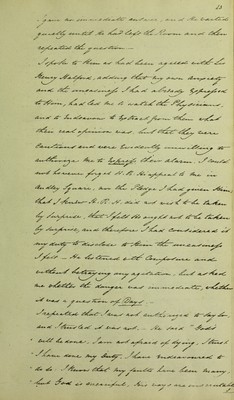 13
gave no immediate answer, and He waited
quietly until He had left the Room and then
repeated the question —
I spoke to Him as had been agreed with Sir
Henry Halford, adding that my own anxiety
and the uneasiness I had already expressed
to Him, had led me to watch the Physicians,
and to endeavour to extract from them what
their real opinion was, but that they were
cautious and were evidently unwilling to
authorize me to express their alarm. I could
not however forget H. R. H. appeal to me in
Audley Square, nor the Pledge I had given Him,
that I knew H. R. H. did not wish to be taken
by surprise, that I felt He ought not to be taken
by surprise, and therefore I had considered it
my duty to disclose to Him the uneasiness
I felt — He listened with Composure and
without betraying any agitation, but asked
me whether the danger was immediate, whether
it was a question of Days —
I repeated that I was not authorized to say so,
and I trusted it was not — He said "God's
will be done, I am not afraid of dying, I trust
I have done my duty, I have endeavoured to
do so, I know that my faults have been many,
but God is merciful, His ways are inscrutable